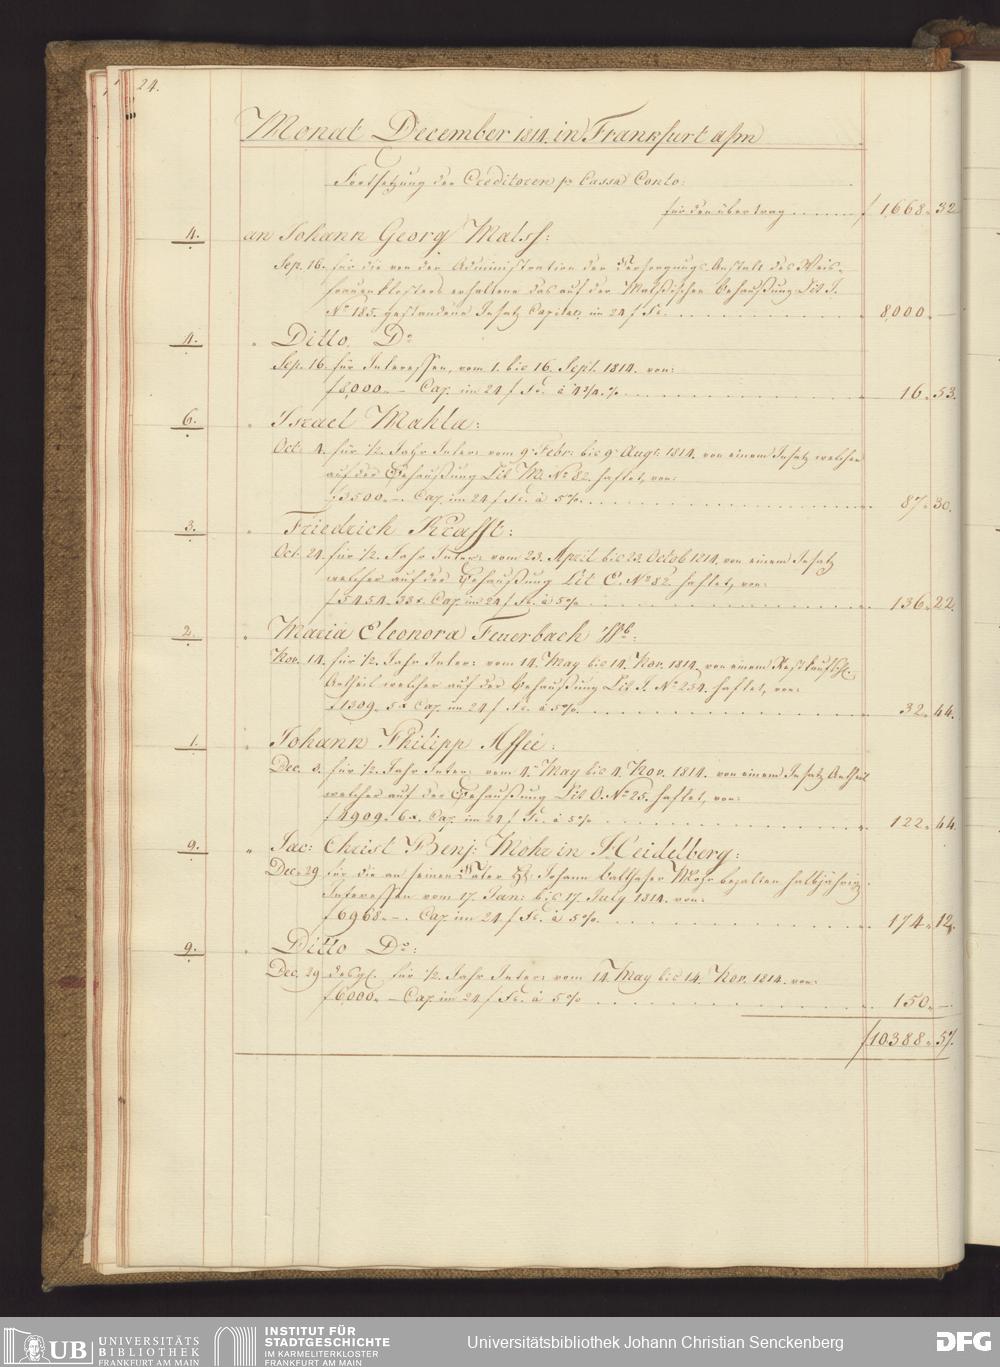 24.
Monat December 1814. in Frankfurt a/m
Fortsetzung der Creditoren pr Cassa Conto:
für den übertrag ........ f 1,668.. 32
4. an Johann Georg Malsf:
Sep. 16. für die von der Administration der Versorgungs Anstalt des Weis-
frauenklosters erhaltene das auf der Malsischen Behausung Lit J.
No 185. gestandene Insatz Capital, im 24 f Fs. ........ 8,000.. —
4. " Ditto Do
Sep. 16. für Interessen, vom 1. bis 16. Sept. 1814. von:
f 8,000.. — Cap. im 24 f Fs. à 4 3/4 % ........ 16.. 53.
6. " Israel Mahla:
Oct. 4. für 1/2 Jahr Inter: vom 9 Febr: bis 9 Augt: 1814. von einem Insatz welcher
auf der Behausung Lit M. No 82. haftet, von:
f 3500.. —. Cap. im 24 f Fs. à 5 %. ........ 87.. 30.
3. " Friedrich Krafft:
Oct. 24. für 1/2 Jahr Inter: vom 23. April bis 23. Octob 1814. von einem Insatz
welcher auf der Behausung Lit C. No 82 haftet, von:
f 5454.. 33x. Cap. im 24 f Fs. à 5 % ........ 136.. 22.
2. " Maria Eleonora Feuerbach Wb:
Nov. 14. für 1/2 Jahr Inter: vom 14. May bis 14. Nov. 1814. von einem Restkaufschl.
Antheil welcher auf der Behausung Lit J. No 254. haftet, von:
f 1309.. 5x Cap. im 24 f Fs. à 5 %. ........ 32.. 44.
1. " Johann Philipp Affée:
Dec. 3. für 1/2 Jahr Inter: vom 4. May bis 4. Nov. 1814. von einem Insatz Antheil
welcher auf der Behausung Lit O. No 25. haftet, von:
f 4909.. 6x. Cap. im 24 f Fs. à 5 % ........ 122.. 44.
9. " Jac: Christ Benj: Mohr in Heidelberg:
Dec. 29 für die an seinen Vater H: Johann Balthaser Mohr bezalten halbjährig.
Interessen vom 17. Jan: bis 17. July 1814. von:
f 6968.. —. Cap im 24 f Fs. à 5 %. ........ 174.. 12.
9. " Ditto Do:
Dec. 29 desgl. für 1/2 Jahr Inter: vom 14. May bis 14. Nov. 1814. von:
f 6,000.. — Cap im 24 f Fs. à 5 % ........ 150.. —
f 10388.. 57.
UB UNIVERSITÄTS BIBLIOTHEK FRANKFURT AM MAIN
INSTITUT FÜR STADTGESCHICHTE IM KARMELITERKLOSTER FRANKFURT AM MAIN
Universitätsbibliothek Johann Christian Senckenberg
DFG